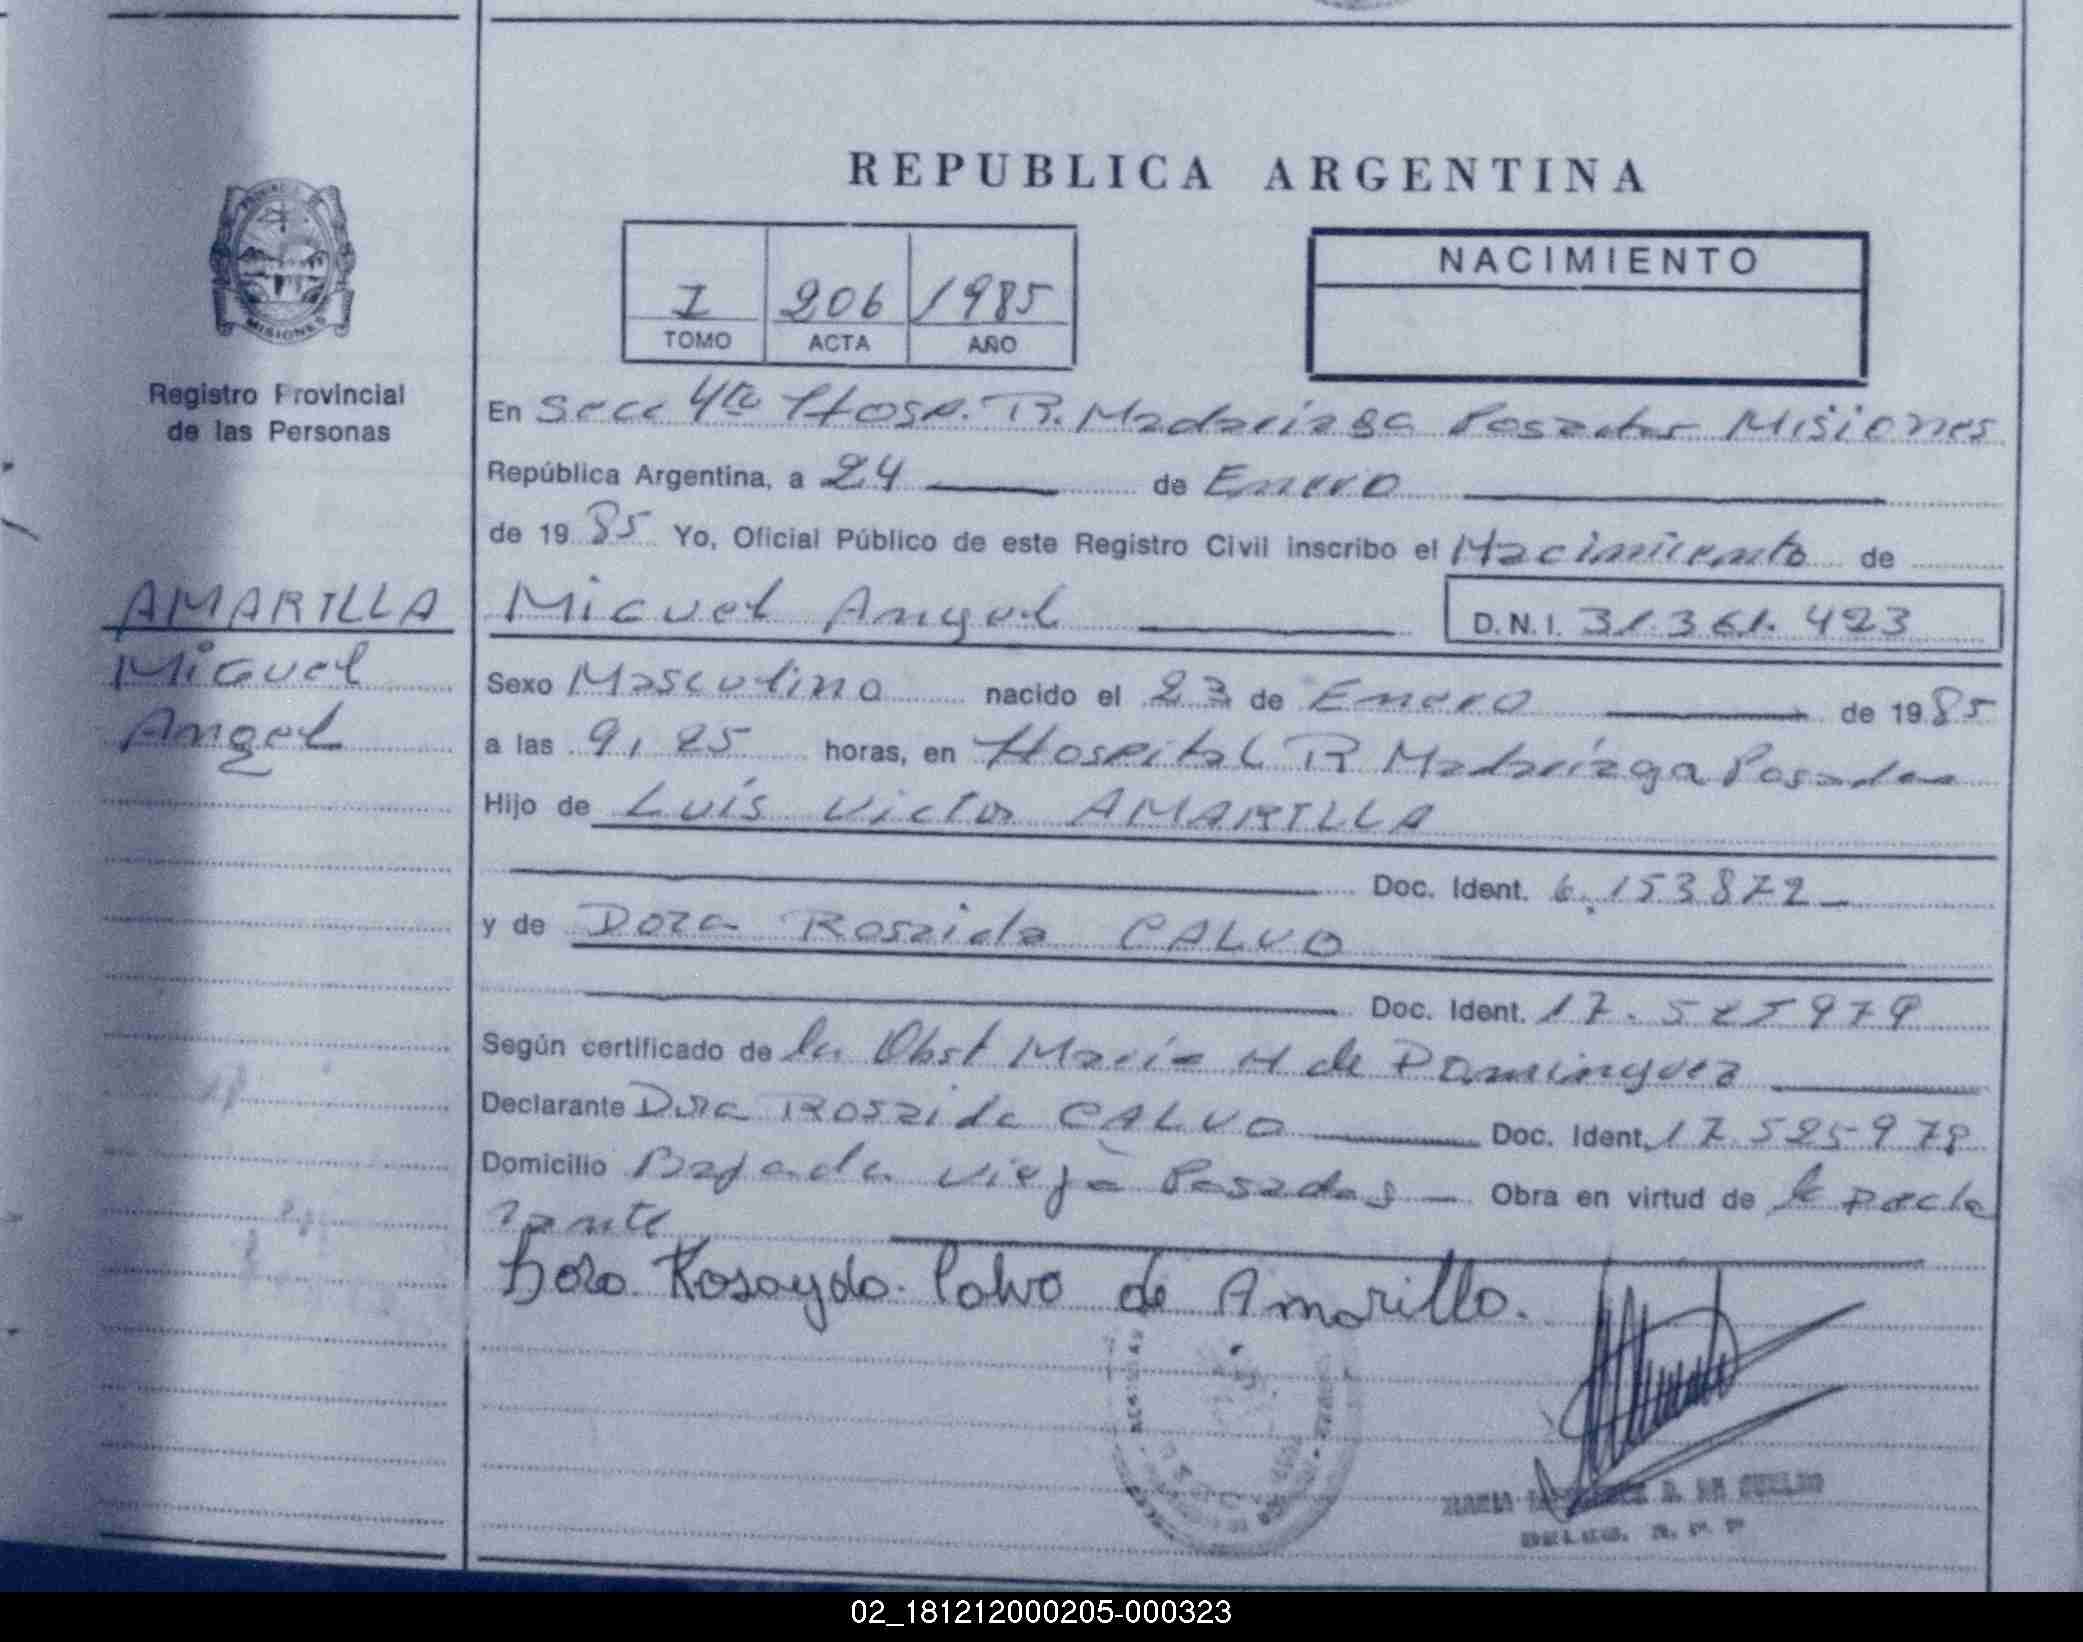 REPUBLICA ARGENTINA
I 206 1985
TOMO ACTA AÑO
NACIMIENTO
MISIONES
Registro Provincial
de las Personas
AMARILLA
Miguel
Angel
En Secc 4ta Hosp. R. Madariaga Posadas Misiones
República Argentina, a 24 de Enero
de 1985 Yo, Oficial Público de este Registro Civil inscribo el Nacimiento de
Miguel Angel D.N.I. 31.361.423
Sexo Masculino nacido el 23 de Enero de 1985
a las 9,25 horas, en Hospital R Madariaga Posadas
Hijo de Luis Victor AMARILLA
Doc. Ident. 6.153872
y de Dora Rosaida CALVO
Doc. Ident. 17.525979
Según certificado de la Obst Maria H de Dominguez
Declarante Dora Rosaida CALVO Doc. Ident. 17.525979
Domicilio Bajada vieja Posadas Obra en virtud de la Decla
rante
Dora Rosayda Calvo de Amarilla.
02_181212000205-000323